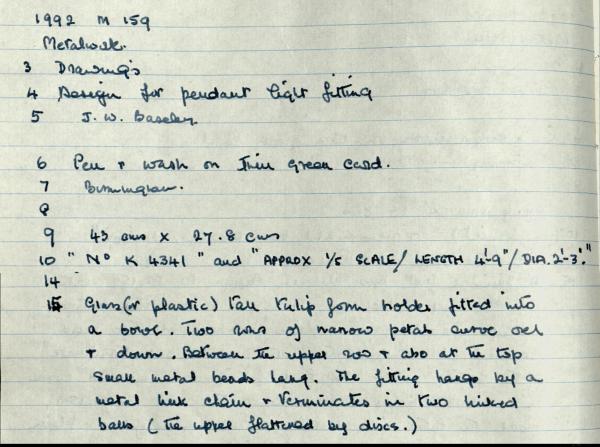 1992 M 159
Metalwork.
3 Drawings
4 Design for pendant light fitting
5 J. W. Baseley
6 Pen + wash on thin green card.
7 Birmingham.
8
9 43 cms x 27.8 cms
10 "No K 4341" and "APPROX 1/5 SCALE/ LENGTH 4'-9"/ DIA. 2'-3"."
14
15 Glass (or plastic) tall tulip form holder fitted into
a bowl. Two rows of narrow petals curve over
+ down. Between the upper row + also at the top
small metal beads hang. The fitting hangs by a
metal link chain + terminates in two linked
balls (the upper flattened by discs.)